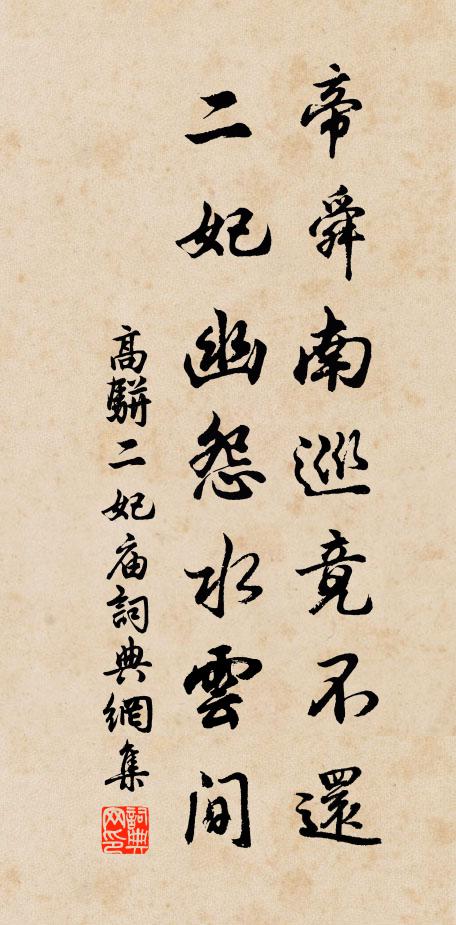 帝舜南巡竟不還
二妃幽怨水雲間
高駢二妃庙詞典網集
詞典网印